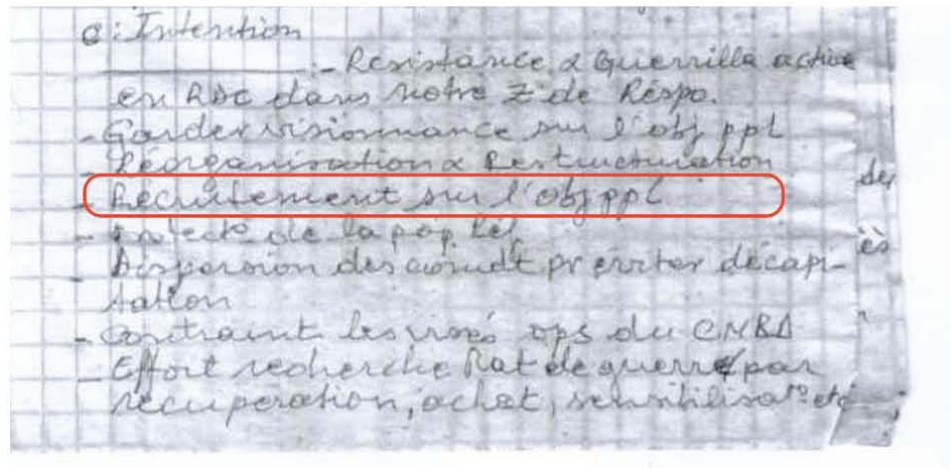 c: Intention
:- Resistance & Guerrilla active
en RDC dans notre Z de Respo.
- Garder visionnance sur l'obj ppl
- Réorganisation & Restructuration
- Recrutement sur l'obj ppl
- de la pop
- Dispersion des comdt pr eviter décapi-
tation
- contraint les ops du CNRD
- Effort recherche Mat de guerre par
récupération, achat, sensibilisa° etc